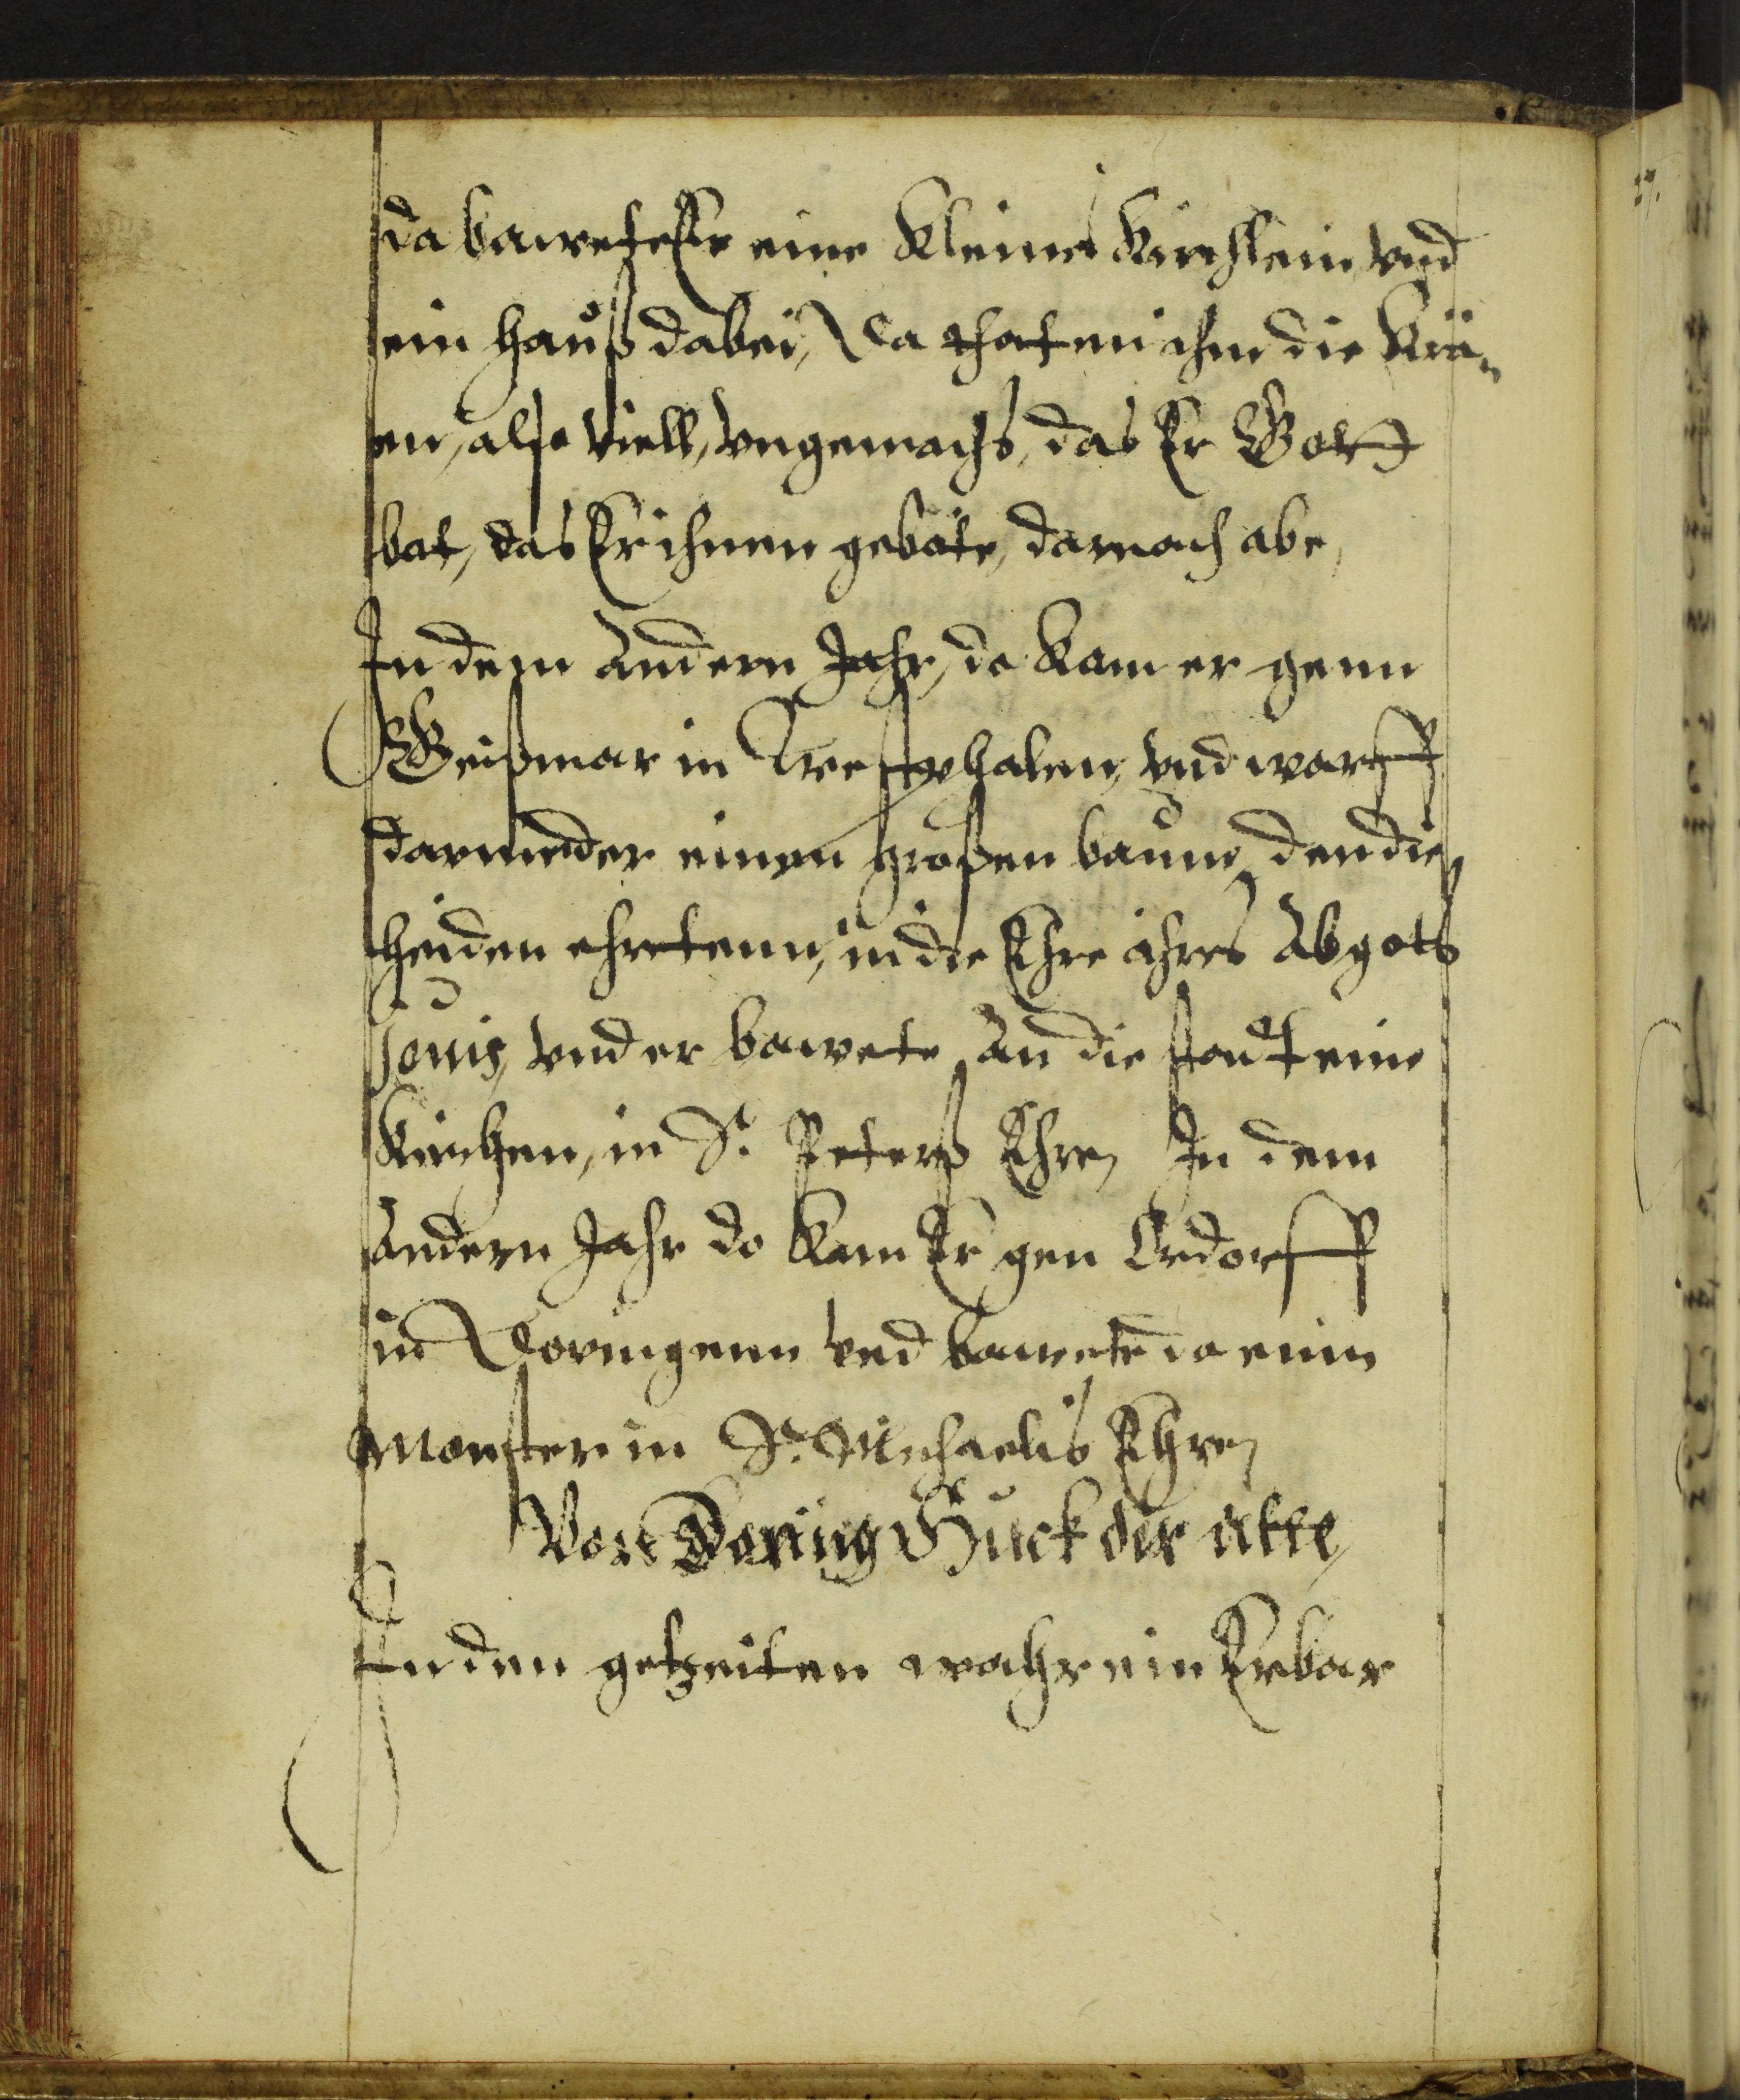 da bawete Er eine Kleines Kirchlein, vnd
ein hauß dabei, Da thaten ihm die Krä„
en, also viell, vngemachs, das Er Gott
bat, das Er ihnen geböte, darnach abe,
In dem andern Jahr, do kam er genn
Geißmar in Westphalen, vnd warff
darnieder einen großen baum, den die
heiden ehretenn, in die Ehre ihres Abgots
Jouis, vnd er bawete an die stadt eine
Kirchen, in S. Peterß Ehre, In dem
andern Jahr do kam Er gen Ordorff
in Doringenn vnd bawete do einn
Monster in S. Michaelis Ehre,
Von Döring Huck der Alte,
In den getzeiten wahr ein Erbar